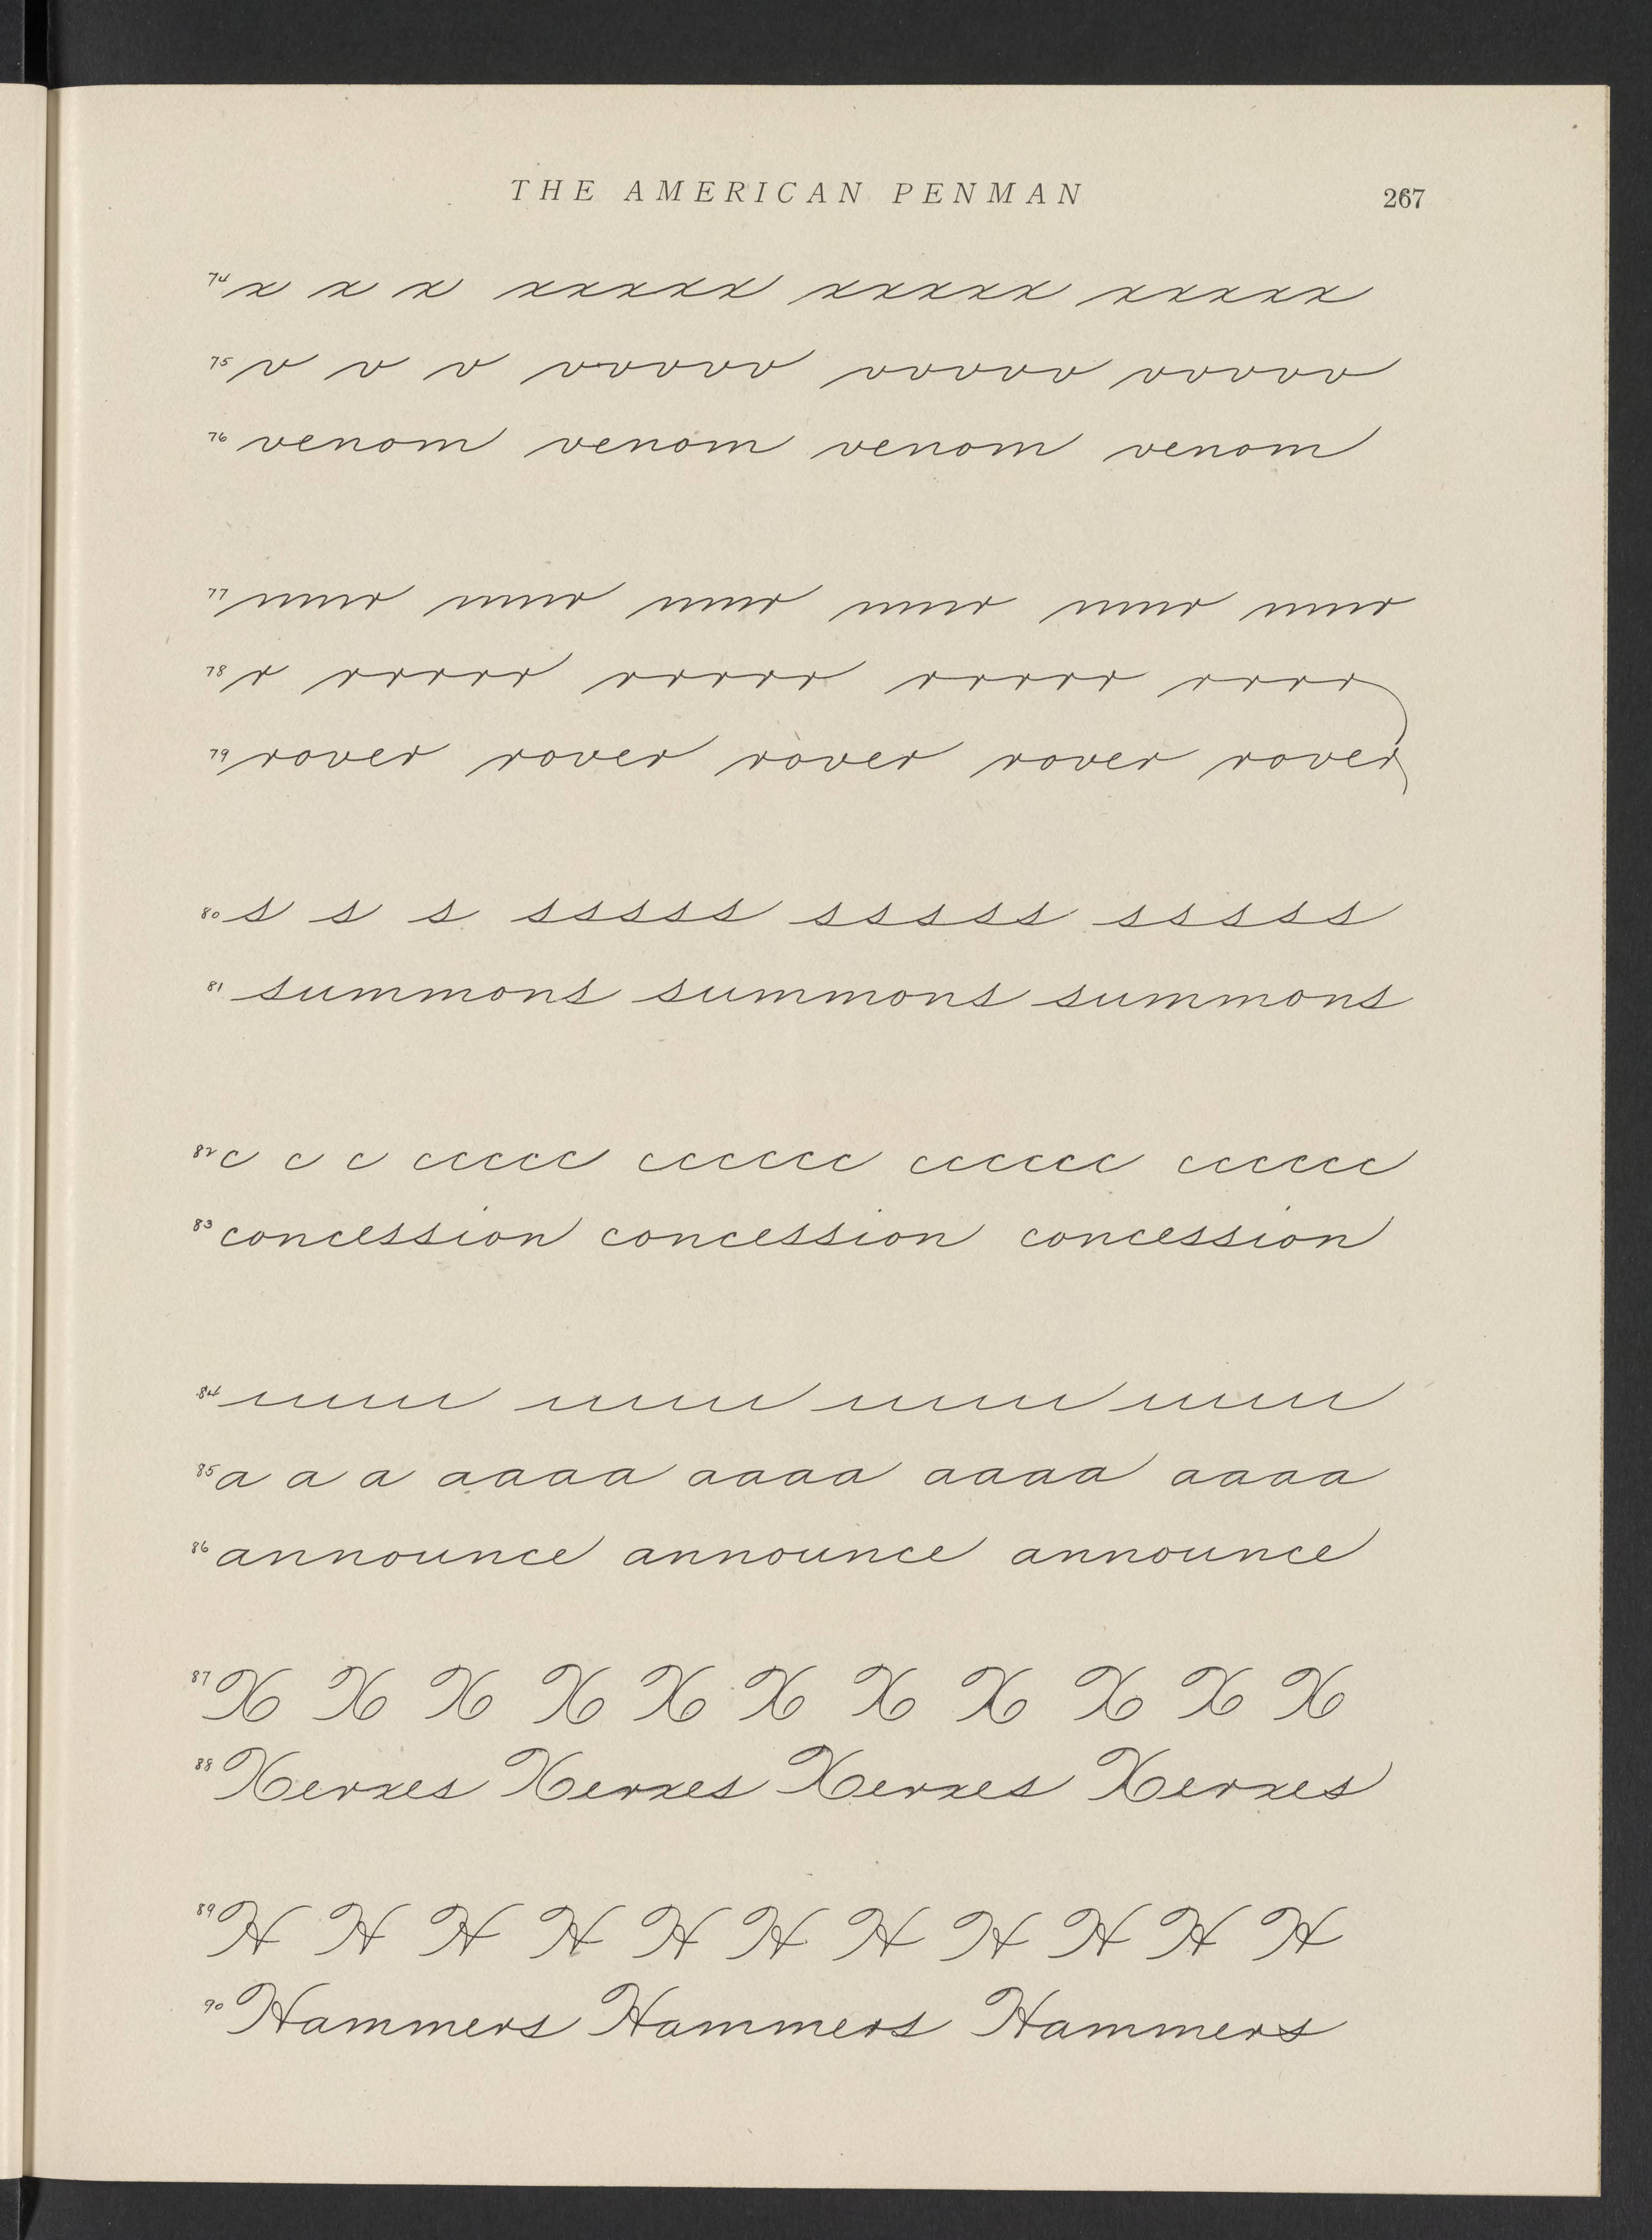 THE AMERICAN PENMAN 267
74 x x x xxxxx xxxxx xxxxx
75 v v v vvvvv vvvvv vvvvv
76 venom venom venom venom
77
78 r rrrrr rrrrr rrrrr rrrr
79 rover rover rover rover rover
80 s s s sssss sssss sssss
81 summons summons summons
82 c c c ccccc cccccc cccccc cccccc
83 concession concession concession
84
85 a a a aaaa aaaa aaaa aaaa
86 announce announce announce
87 X X X X X X X X X X X
88 Xerxes Xerxes Xerxes Xerxes
89 H H H H H H H H H H H
90 Hammers Hammers Hammers